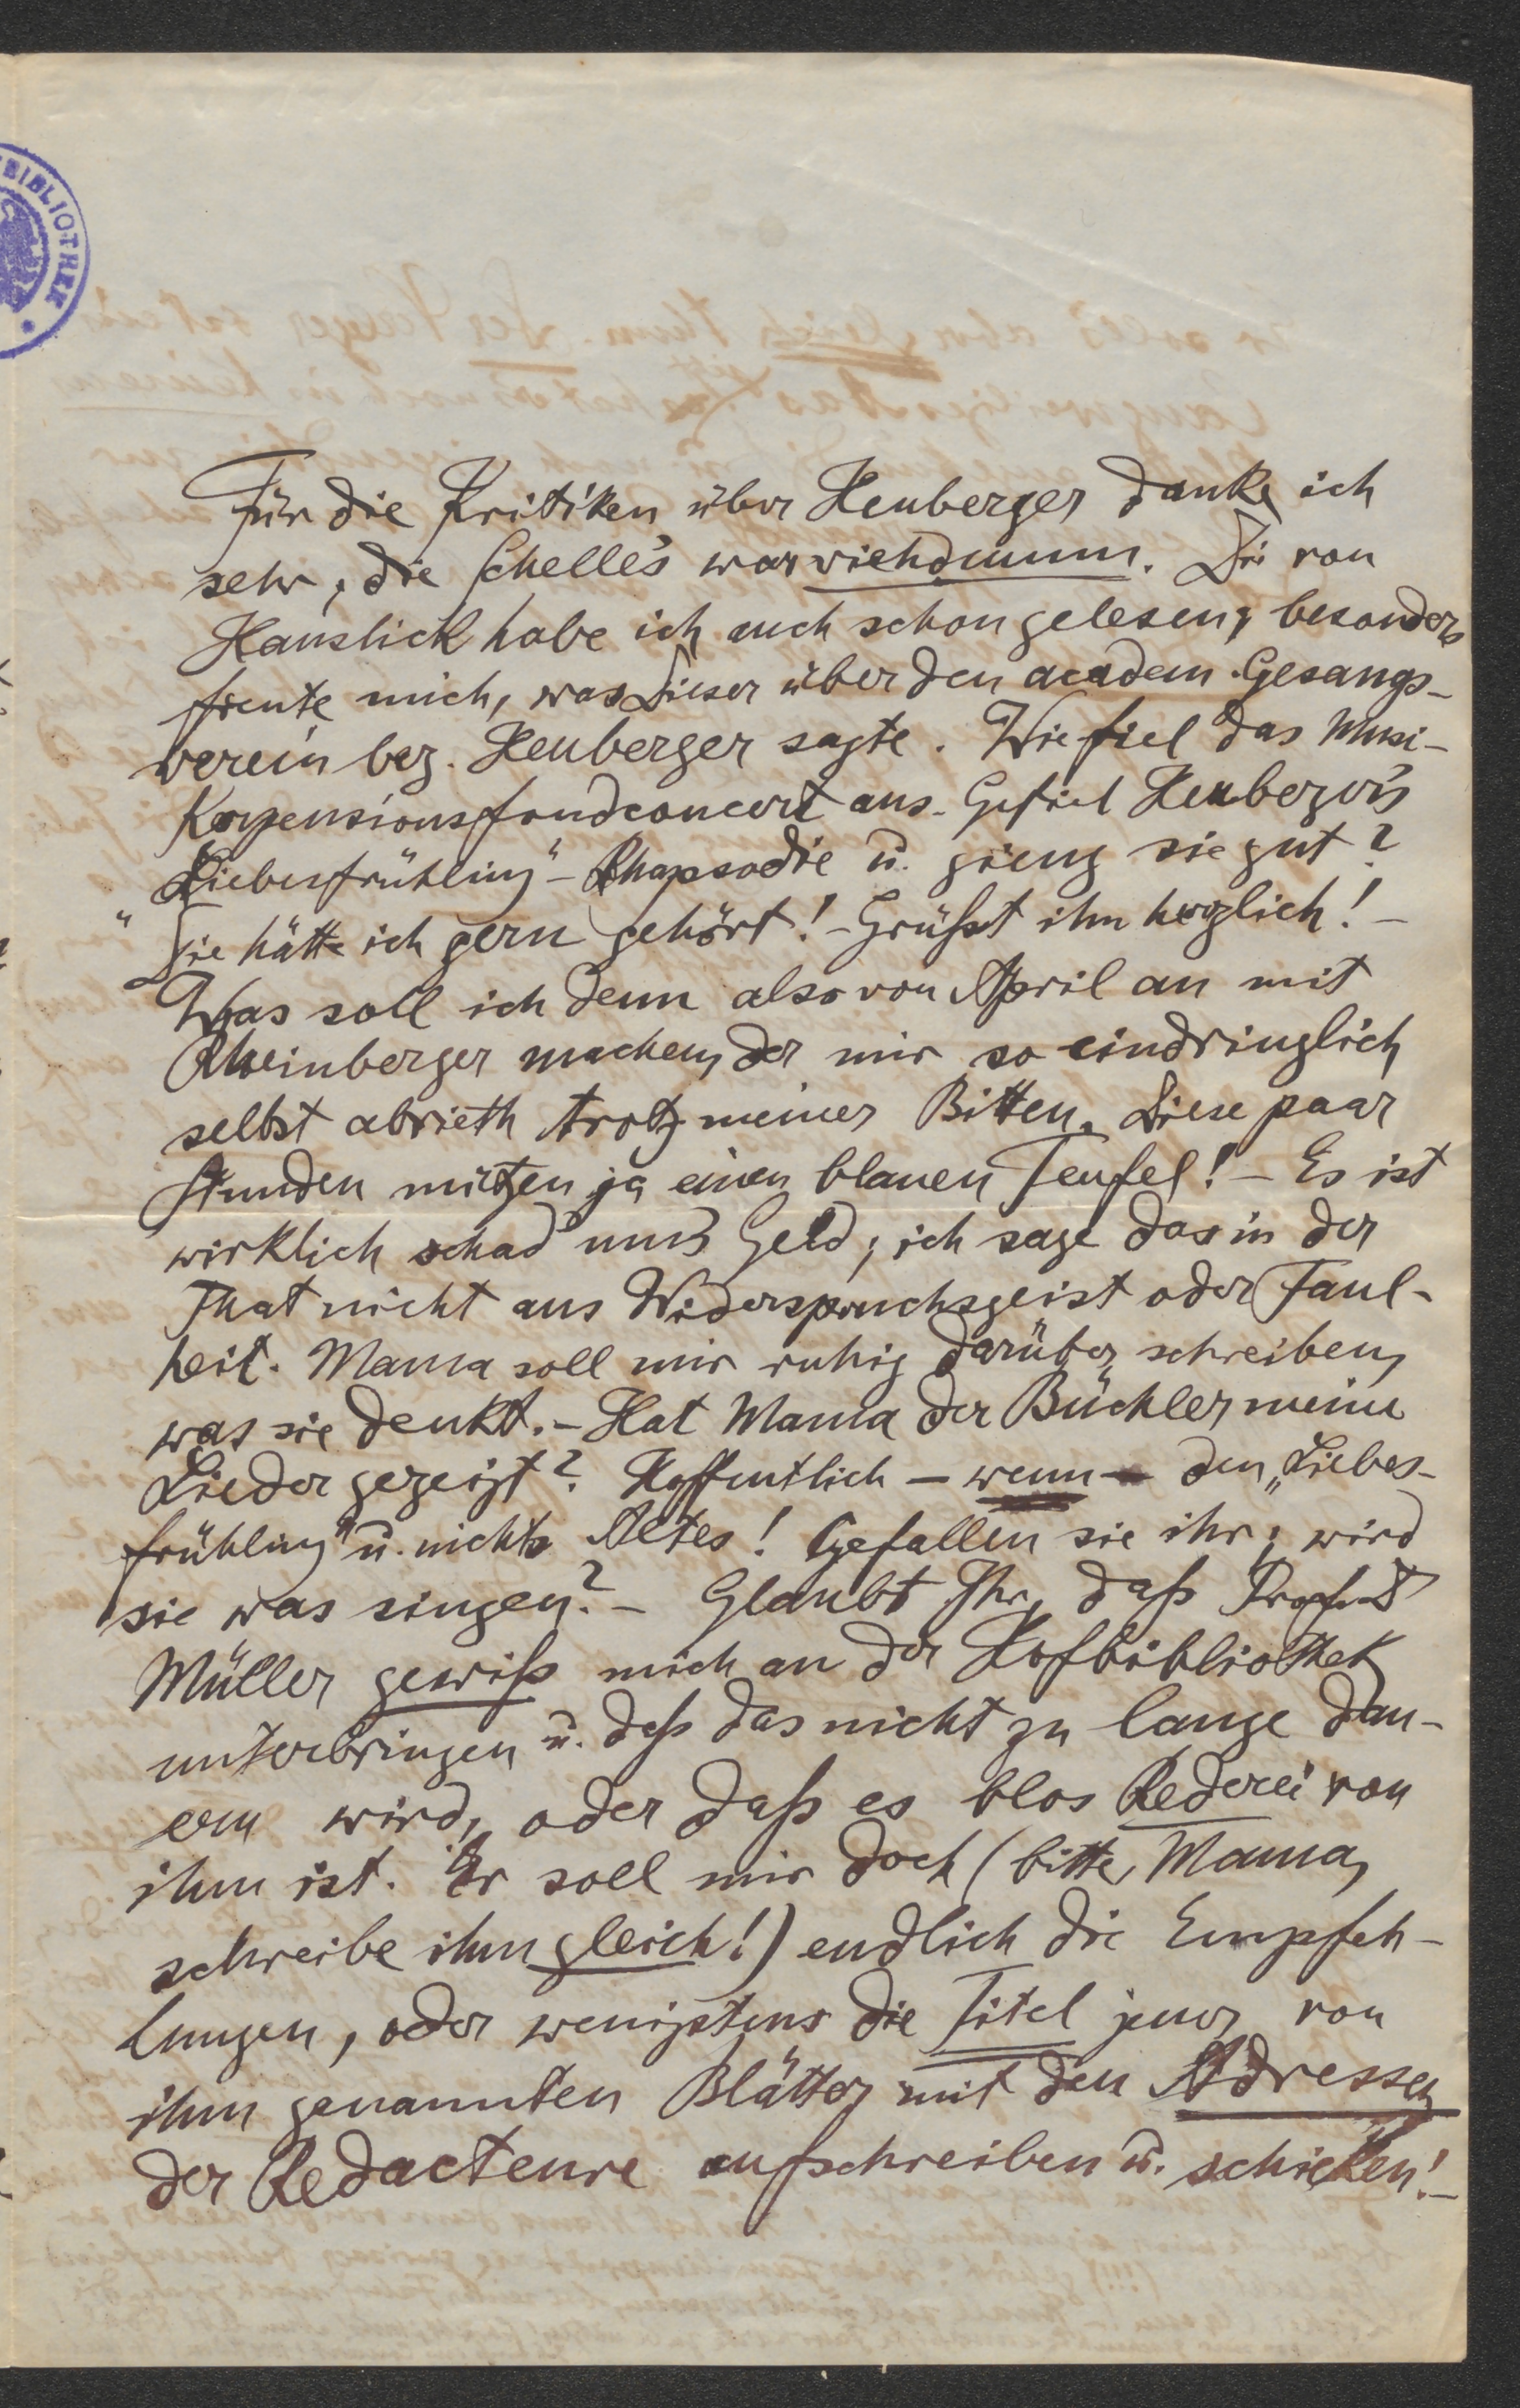 BIBLIOTHEK
Für die Kritiken über Heuberger danke ich
sehr, die Schelle's war viehdumm. Die von
Hanslick habe ich auch schon gelesen, besonders
freute mich, was Dieser über den academ. Gesangs-
verein bez. Heuberger sagte. Wie fiel das Musi-
kerpensionsfondconcert aus. Gefiel Heuberger's
„Liebesfrühling"-Rhapsodie u. gieng sie gut?
Die hätte ich gern gehört! - Grüßt ihn herzlich! -
Was soll ich denn also von April an mit
Rheinberger machen, der mir so eindringlich
selbst abrieth trotz meiner Bitten. Diese paar
Stunden nützen ja einen blauen Teufel! - Es ist
wirklich schad' ums Geld; ich sage das in der
That nicht aus Widerspruchsgeist oder Faul-
heit. Mama soll mir ruhig darüber schreiben,
was sie denkt. - Hat Mama der Büchler meine
Lieder gezeigt? Hoffentlich - wenn - den „Liebes-
frühling" u. nichts Altes! Gefallen sie ihr; wird
sie was singen? - Glaubt Ihr, daß
Müller gewiß mich an der Hofbibliothek
unterbringen u. daß das nicht zu lange dau-
ern wird, oder daß es blos Rederei von
ihm ist. Er soll mir doch (bitte, Mama,
schreibe ihm gleich!) endlich die Empfeh-
lungen, oder wenigstens die Titel jener von
ihm genannten Blätter mit den Adressen
der Redacteure aufschreiben u. schicken! -